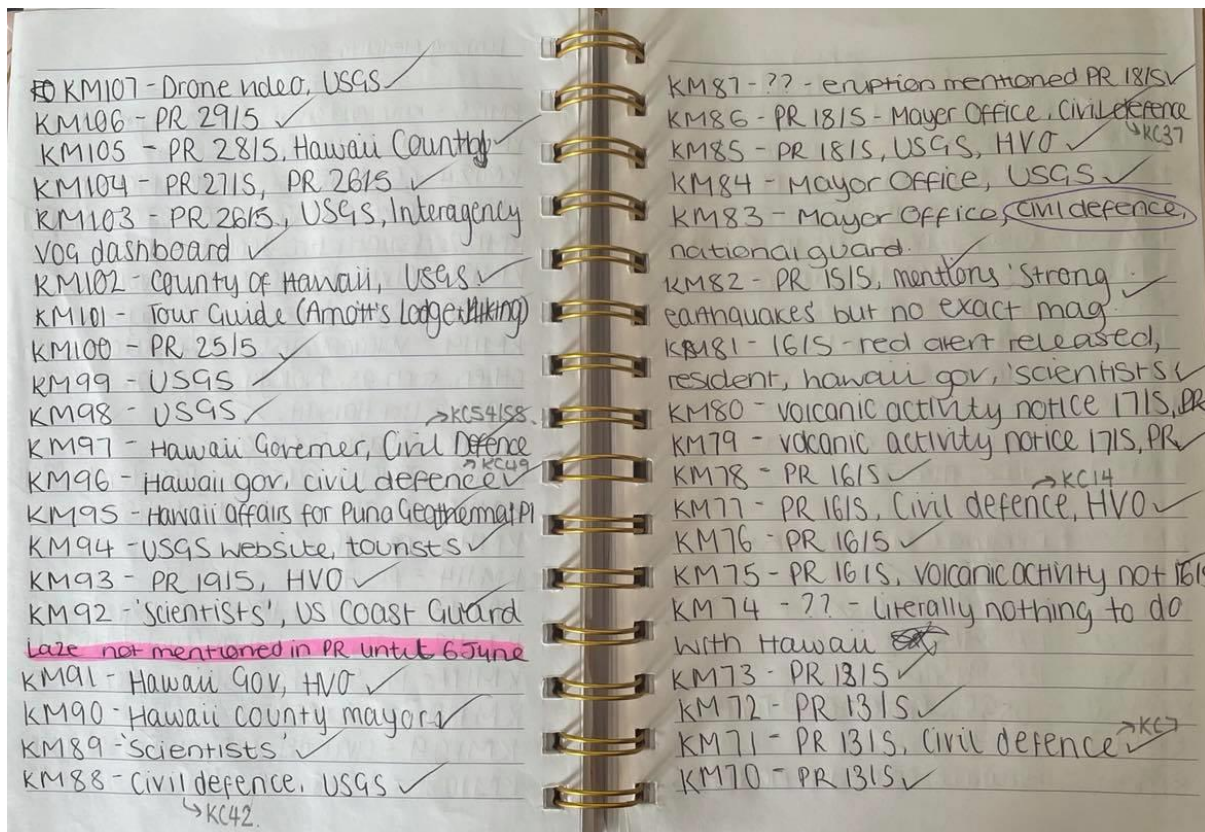 KM107 - Drone video, USGS ✓
KM106 - PR 29/5 ✓
KM105 - PR 28/5, Hawaii County ✓
KM104 - PR 27/5, PR 26/5 ✓
KM103 - PR 26/5, USGS, Interagency
VOG dashboard ✓
KM102 - County of Hawaii, USGS ✓
KM101 - Tour Guide (Arnott's Lodge + Hiking)
KM100 - PR 25/5 ✓
KM99 - USGS ✓
KM98 - USGS ✓
→KC54/58
KM97 - Hawaii Governer, Civil Defence
→KC49
KM96 - Hawaii gov, civil defence ✓
KM95 - Hawaii affairs for Puna Geothermal Pl
KM94 - USGS website, tourists ✓
KM93 - PR 19/5, HVO ✓
KM92 - 'Scientists', US Coast Guard
Laze not mentioned in PR until 6 June
KM91 - Hawaii Gov, HVO ✓
KM90 - Hawaii county mayor ✓
KM89 - 'Scientists' ✓
KM88 - Civil defence, USGS ✓
↳KC42.
KM87 - ?? - eruption mentioned PR 18/5 ✓
KM86 - PR 18/5 - Mayer Office, Civil defence
↳KC37
KM85 - PR 18/5, USGS, HVO ✓
KM84 - Mayor Office, USGS ✓
KM83 - Mayor Office, Civil defence,
national guard. ✓
KM82 - PR 15/5, mentions 'strong
earthquakes but no exact mag. ✓
KM81 - 16/5 - red alert released,
resident, hawaii gov, 'scientists ✓
KM80 - volcanic activity notice 17/5, PR
KM79 - volcanic activity notice 17/5, PR ✓
KM78 - PR 16/5 ✓
→KC14
KM77 - PR 16/5, Civil defence, HVO ✓
KM76 - PR 16/5 ✓
KM75 - PR 16/5, volcanic activity not 16/5
KM74 - ?? - literally nothing to do
with Hawaii
KM73 - PR 13/5 ✓
KM72 - PR 13/5 ✓
→KC7
KM71 - PR 13/5, Civil defence ✓
KM70 - PR 13/5 ✓